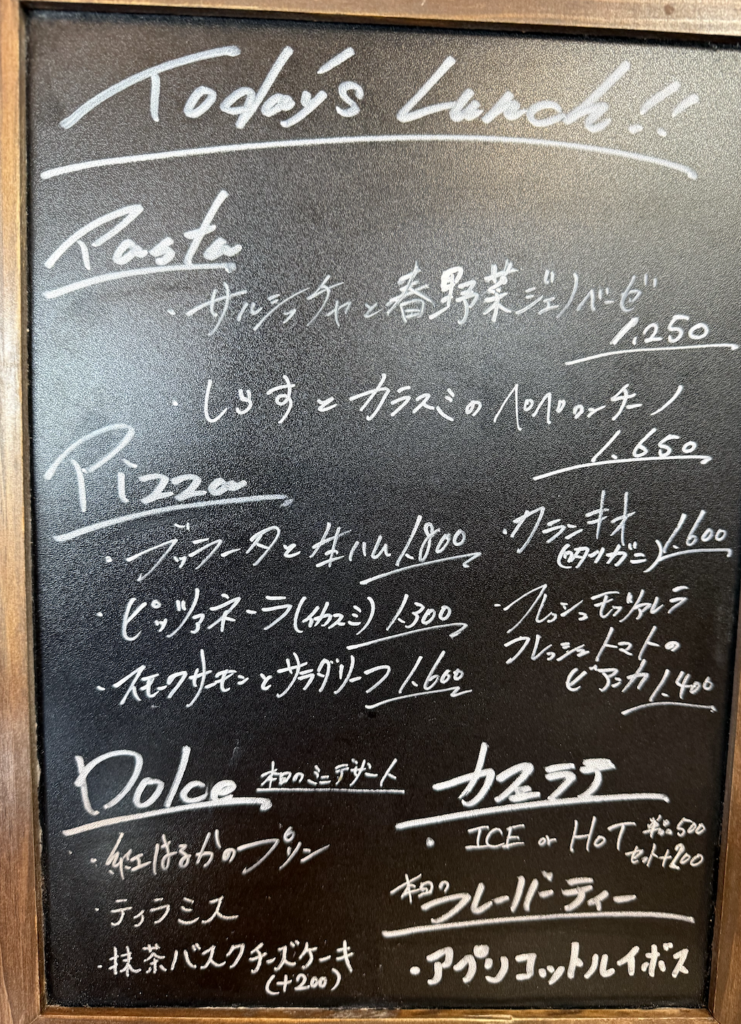 Today's Lunch!!
Pasta
・サルシッチャと春野菜ジェノベーゼ
1.250
・しらすとカラスミのペペロンチーノ
1.650
Pizza
・ブッラータと生ハム 1.800
・ピッツァネーラ(イカスミ) 1.300
・スモークサーモンとサラダリーフ 1.600
・カランキオ
(ワタリガニ) 1.600
・フレッシュモッツァレラ
フレッシュトマトの
ビアンカ 1.400
Dolce 本日のミニデザート
・紅はるかのプリン
・ティラミス
・抹茶バスクチーズケーキ
(+200)
カフェラテ
・ICE or HOT 単品500
セット+200
本日の
フレーバーティー
・アプリコットルイボス